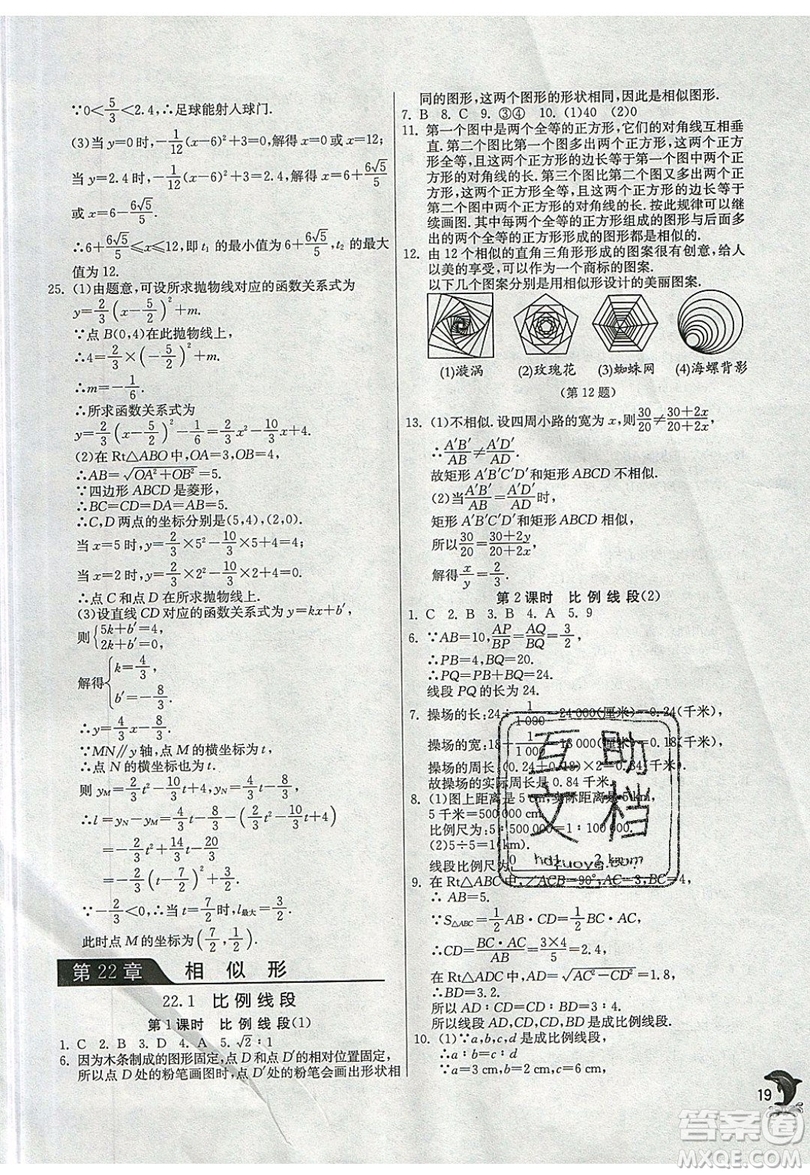 ∵0<5/3<2.4,∴足球能射入球门.
(3)当y=0时,-1/12(x-6)²+3=0,解得x=0或x=12;
当y=2.4时,-1/12(x-6)²+3=0,解得x=6+6√5/5
或x=6-6√5/5.
∴6+6√5/5≤x≤12,即t₁的最小值为6+6√5/5,t₂的最大
值为12.
25. (1)由题意,可设所求抛物线对应的函数关系式为
y=2/3(x-5/2)²+m.
∵点B(0,4)在此抛物线上,
∴4=2/3×(-5/2)²+m.
∴m=-1/6.
∴所求函数关系式为
y=2/3(x-5/2)²-1/6=2/3x²-10/3x+4.
(2)在Rt△ABO中,OA=3,OB=4,
∴AB=√(OA²+OB²)=5.
∵四边形ABCD是菱形,
∴BC=CD=DA=AB=5.
∴C,D两点的坐标分别是(5,4),(2,0).
当x=5时,y=2/3×5²-10/3×5+4=4;
当x=2时,y=2/3×2²-10/3×2+4=0,
∴点C和点D在所求抛物线上.
(3)设直线CD对应的函数关系式为y=kx+b′,
则{5k+b′=4, 2k+b′=0.
解得{k=4/3, b′=-8/3.
∴y=4/3x-8/3.
∵MN∥y轴,点M的横坐标为t,
∴点N的横坐标也为t.
则y_M=2/3t²-10/3t+4,y_N=4/3t-8/3,
∴l=y_N-y_M=4/3t-8/3-(2/3t²-10/3t+4)
=-2/3t²+14/3t-20/3
=-2/3(t-7/2)²+3/2,
∵-2/3<0,∴当t=7/2时,l最大=3/2,
此时点M的坐标为(7/2,1/2).
第22章 相似形
22.1 比例线段
第1课时 比例线段(1)
1. C 2. B 3. D 4. A 5.√2:1
6. 因为木条制成的图形固定,点D和点D′的相对位置固定,
所以点D处的粉笔画图时,点D′处的粉笔会画出形状相
同的图形,这两个图形的形状相同,因此是相似图形.
7. B 8. C 9. ③④ 10. (1)40 (2)0
11. 第一个图中是两个全等的正方形,它们的对角线互相垂
直.第二个图比第一个图多出两个正方形,这两个正方
形全等,且这两个正方形的边长等于第一个图中两个正
方形的对角线的长.第三个图比第二个图又多出两个正
方形,这两个正方形全等,且这两个正方形的边长等于
第二个图中大正方形的对角线的长.按此规律可以继
续画图.由两个全等的正方形组成的图形与第一个图形
都是相似的.
12. 由12个相似的直角三角形形成的图案很有创意,给人
以美的享受,可以作为一个商标的图案.
以下几个图案分别是用相似形设计的美丽图案.
(1)漩涡 (2)玫瑰花 (3)蜘蛛网 (4)海螺背影
(第12题)
13. (1)不相似.设四周小路的宽为x,则30/20≠(30+2x)/(20+2x)
∴A′B′/AB≠A′D′/AD.
故矩形A′B′C′D′和矩形ABCD不相似.
(2)当A′B′/AB=A′D′/AD时,
矩形A′B′C′D′和矩形ABCD相似,
所以30/20=(30+2y)/(20+2x).
解得x/y=2/3.
第2课时 比例线段(2)
1. C 2. B 3. B 4. A 5. 9
6. ∵AB=10,AP/BP=AQ/BQ=3/2,
∴PB=4,BQ=20.
线段PQ的长为24.
7. 操场的长:24÷1/1 000=24 000(厘米)=0.24(千米),
操场的宽:18÷1/1 000
操场的周长(0.24+0.18)×2=0.84(千米).
故操场的实际周长是0.84千米.
8. (1)图上距离是5 cm,实际距离是5 km,
5千米=500 000 cm
比例尺为:5:500 000=1:100 000.
(2)5÷2.5=2
线段比例尺为
0 2 km
9. 在Rt△ABC中,∠ACB=90°,AC=4,BC=3,
∴AB=5.
∵S△ABC=1/2AB·CD=1/2BC·AC,
∴CD=BC·AC/AB=3×4/5=2.4.
在Rt△ACD中,AD=√(AC²-CD²)=√(4²-2.4²)
=3.2.
所以AD:CD=AC:BC.
所以线段AD,CD,AC,BC是成比例线段.
10. (1)∵a,b,c,d是成比例线段,
∴a:b=c:d.
∵a=4 cm,b=6 cm,d=9 cm,
19
互助
文档
hdzuoye.com
答案圈
MXQE.COM